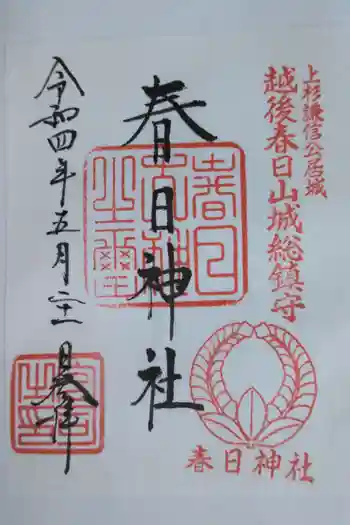 上杉謙信公居城
越後春日山城総鎮守
春日神社
春日神社
令和四年五月二十二日奉拝